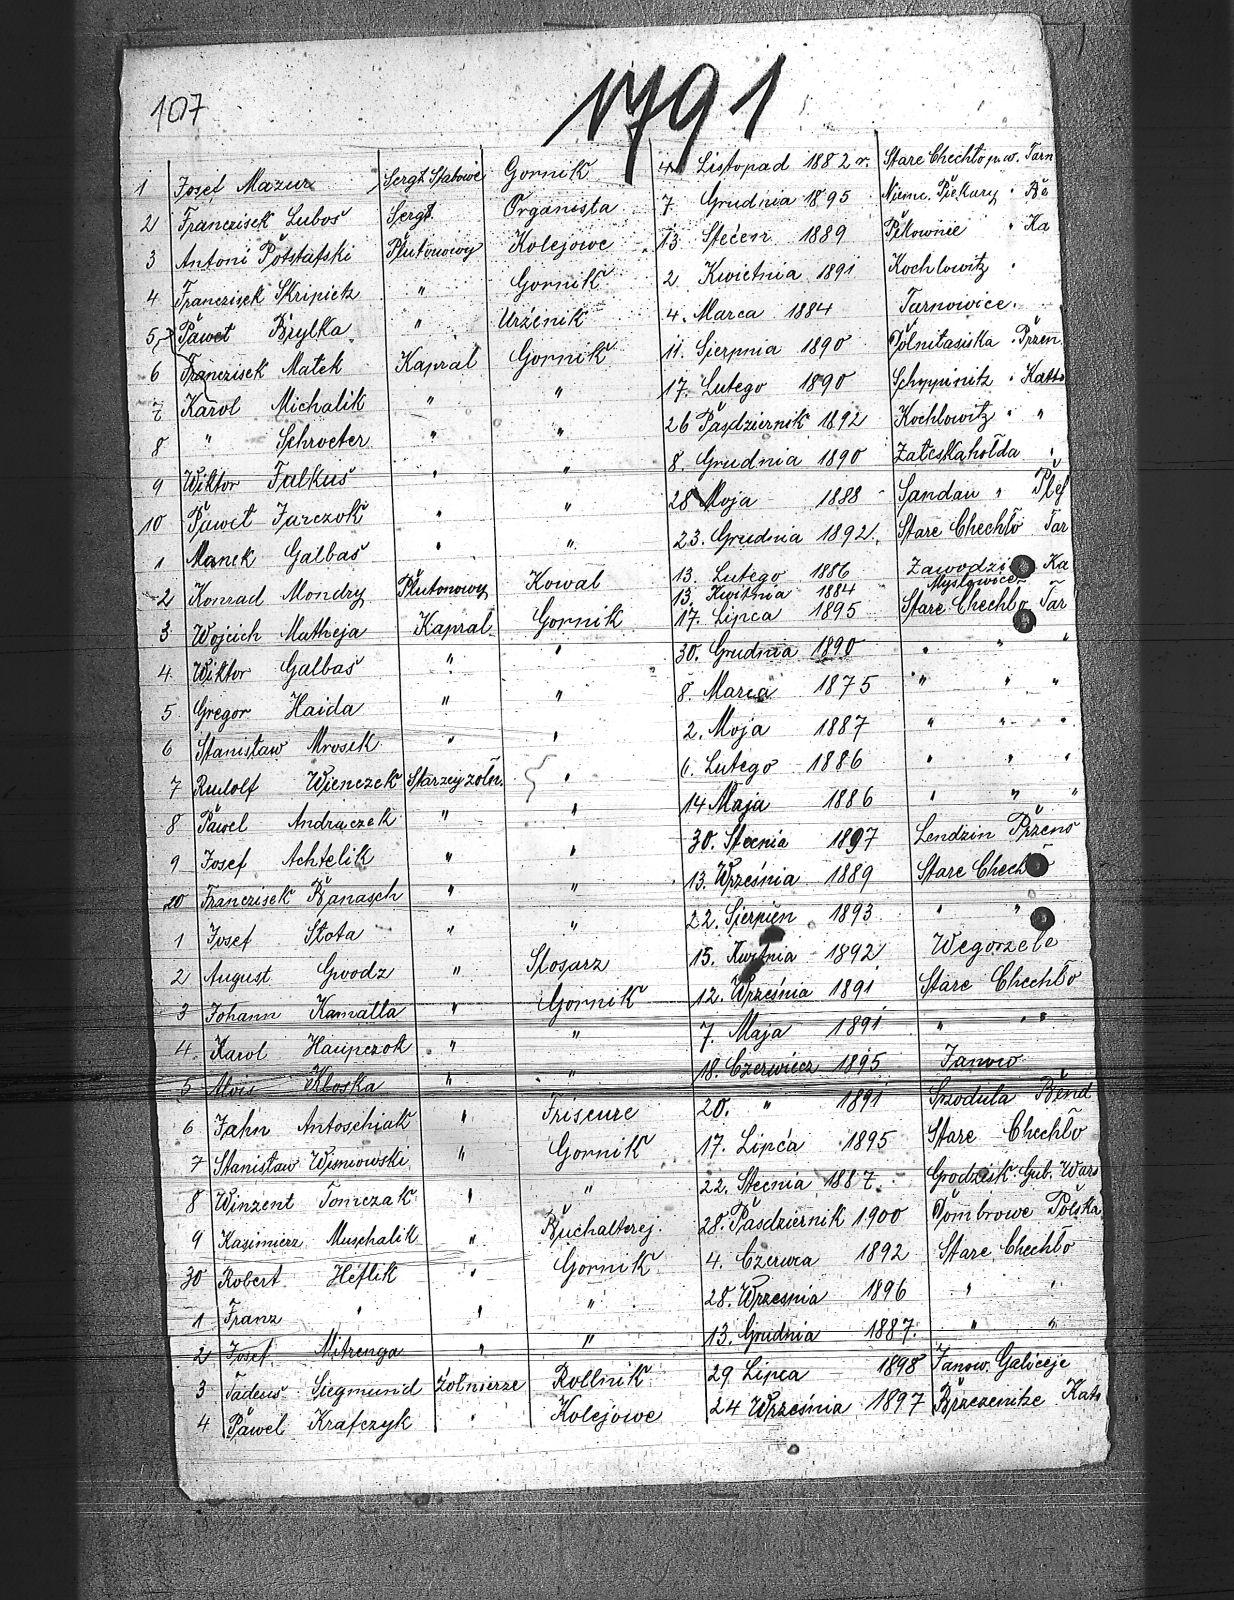 107
1791
1 Josef Mazur Sergt. Stabowe Gornik 4. Listopad 1882 r. Stare Chechło p.w. Tarn
2 Franczisek Luboś Sergt. Organista 7 Grudnia 1895 Niemc. Piekary " Bō
3 Antoni Potstafski Plutonowy Kolejowe 13 Stećen 1889 Pikownie " Ka
4 Franczisek Skripietz " Gornik 2 Kwietnia 1891 Kochlowitz "
5 Paweł Brylka " Urżenik 4. Marca 1884 Tarnowice "
6 Franczisek Matek Kapral Gornik 11. Sierpnia 1890 Przen
7 Karol Michalik " " 17. Lutego 1890 Schoppinitz " Katto
8 " Schroeter " " 26 Pasdziernik 1892 Kochlowitz " "
9 Wiktor Falkus " " 8. Grudnia 1890 Załeskahołda "
10 Paweł Jurczok " " 28 Moja 1888 Sandau " Ples
1 Manek Galbas " " 23. Grudnia 1892 Stare Chechło Tar
2 Konrad Mondry Plutonowy Kowal 13. Lutego 1886 Zawodzi Ka
13. Kwitnia 1884 Mysłowice
3 Wojcich Matheja Kapral Gornik 17. Lipca 1895 Stare Chechło Tar
4 Wiktor Galbas " " 30. Grudnia 1890 " " "
5 Gregor Haida " " 8. Marca 1875 " " "
6 Stanisław Mrosek " " 2. Moja 1887 " " "
7 Rudolf Wienczek Starzejżołn. " 6. Lutego 1886 " " "
8 Pawel Andraczek " " 14 Maja 1886 " " "
9 Josef Achtelik " " 30. Stecnia 1897 Lendzin Przens
20 Franczisek Banasch " " 13. Września 1889 Stare Chechło
1 Josef Słota " " 22. Sierpien 1893 " "
2 August Gwodz " Slosarz 15. Kwitnia 1892 Wegorzele
3 Johann Kamalla " Gornik 12. Września 1891 Stare Chechło
4. Karol Haupczok " " 7. Maja 1891 " "
5 Alois Kloska " " 18. Czerwiecz 1895 Janow
6 Jahn Antoschiak " Friseure 20. " 1891 Szodula Bend
7 Stanisław Wisniowski " Gornik 17. Lipca 1895 Stare Chechło
8 Winzent Tomczak " " 22. Stecnia 1887. Grodzisk. Gub. Wars
9 Kazimierz Muschalik " Buchalterej. 28. Pasdziernik 1900 Dombrowe Polska
30 Robert Heflik " Gornik 4. Czerwca 1892 Stare Chechło
1 Franz " " " 28. Wrzesnia 1896 " "
2 Josef Mitrenga " " 13. Grudnia 1887. " "
3 Tadeus Siegmund Żołnierze Rollnik 29 Lipca 1898 Janow. Galiceje
4 Pawel Krafczyk " Kolejowe 24 Września 1897 Brzezenitze Kato